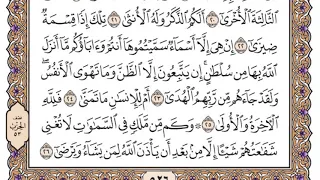 ٱلثَّالِثَةَ ٱلْأُخْرَىٰٓ ٢٠ أَلَكُمُ ٱلذَّكَرُ وَلَهُ ٱلْأُنثَىٰ ٢١ تِلْكَ إِذًا قِسْمَةٌ
ضِيزَىٰٓ ٢٢ إِنْ هِىَ إِلَّآ أَسْمَآءٌ سَمَّيْتُمُوهَآ أَنتُمْ وَءَابَآؤُكُم مَّآ أَنزَلَ
ٱللَّهُ بِهَا مِن سُلْطَٰنٍ ۚ إِن يَتَّبِعُونَ إِلَّا ٱلظَّنَّ وَمَا تَهْوَى ٱلْأَنفُسُ ۖ
وَلَقَدْ جَآءَهُم مِّن رَّبِّهِمُ ٱلْهُدَىٰٓ ٢٣ أَمْ لِلْإِنسَٰنِ مَا تَمَنَّىٰ ٢٤ فَلِلَّهِ
ٱلْءَاخِرَةُ وَٱلْأُولَىٰ ٢٥ وَكَم مِّن مَّلَكٍ فِى ٱلسَّمَٰوَٰتِ لَا تُغْنِى
شَفَٰعَتُهُمْ شَيْـًٔا إِلَّا مِنۢ بَعْدِ أَن يَأْذَنَ ٱللَّهُ لِمَن يَشَآءُ وَيَرْضَىٰٓ ٢٦
الحزب
٥٣
٥٢٦